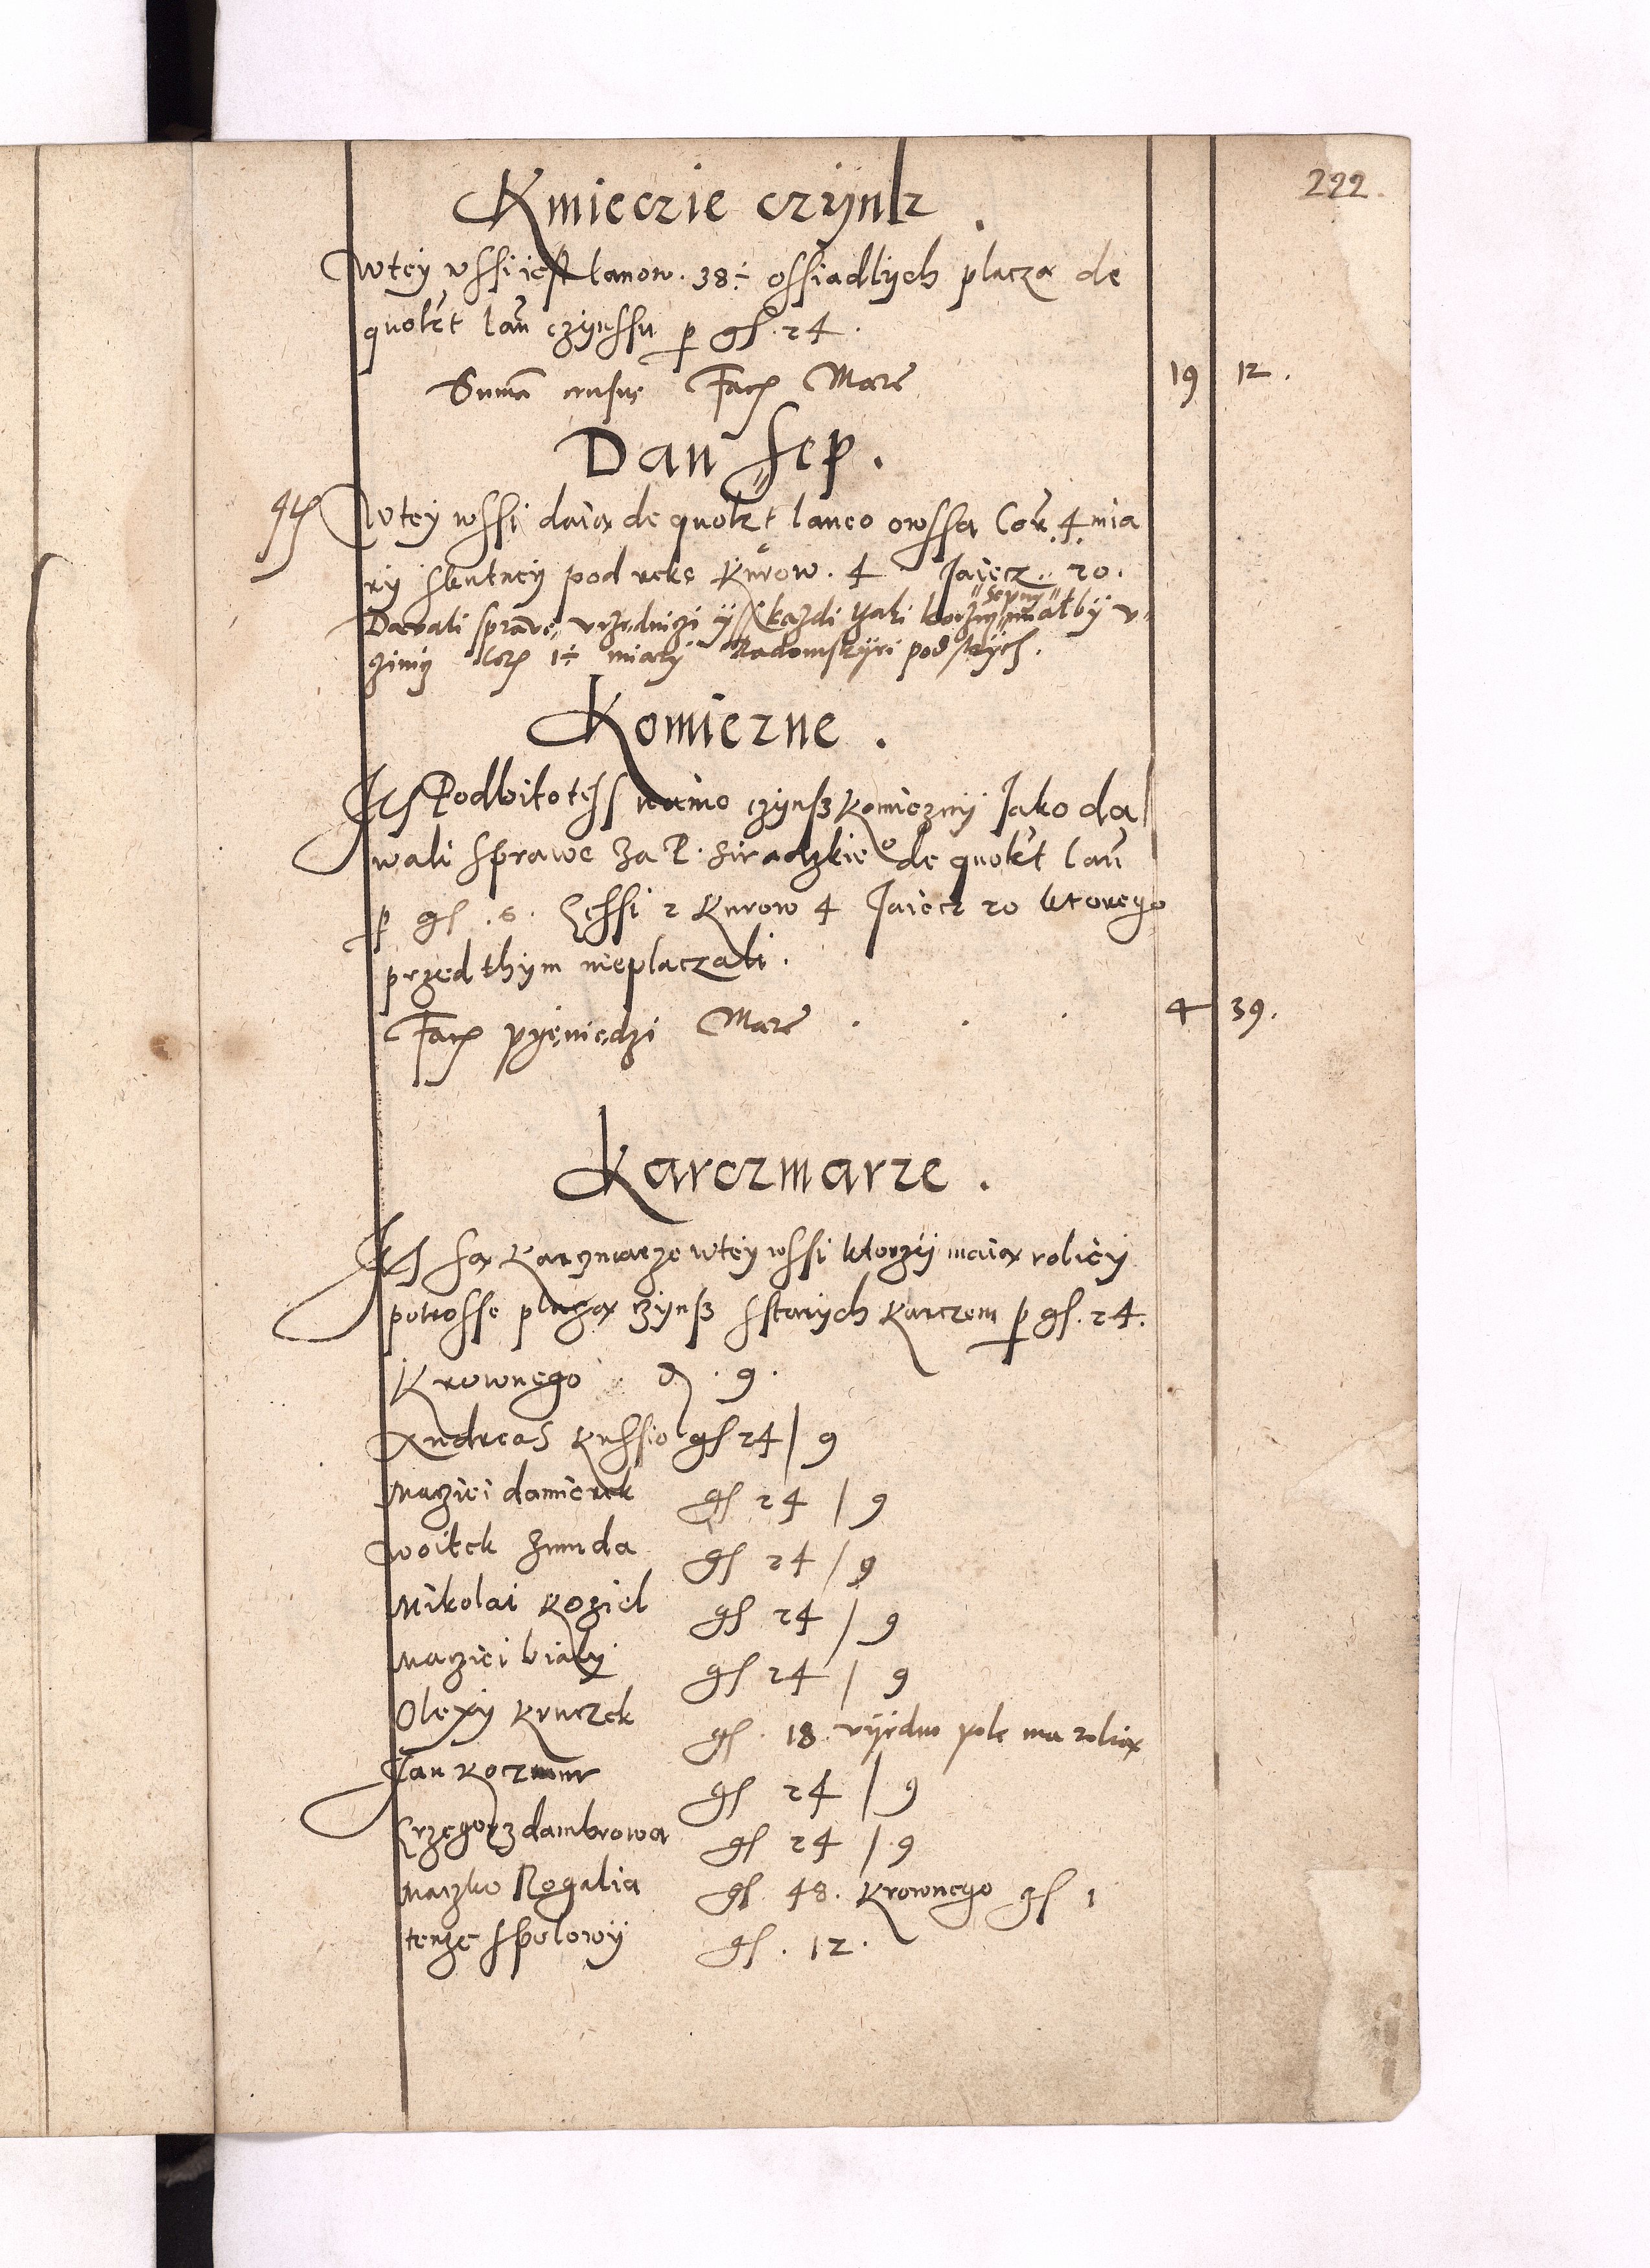 222.
Kmieczie czÿnsz.
Wtey wssi iest lanow. 38÷ ossiadlÿch placza de
quolt lan czÿnssu p gs. 24.
Suma census Facz Marc 19 12.
Dan sep.
Wtey wssi daia de quolt laneo owssa Cor. 4. mia
rÿ skutneÿ pod reke Kurow. 4 Jaiecz. 20.
sepny
Dawali sprawe, vrzednizi ÿss kazdi taki korzecz małby v-
zinÿ Corz 1÷ miarÿ Radomskÿei podstrÿch.
Komiezne.
Jest Podbitotess namo czÿnsz komieznÿ Jako da
wali sprawe za P. Siradzkieo de quolt lan
p gs. 6. Gessi 2 Kurow 4 Jaiecz 20 ktorego
przed thÿm nieplaczali.
Facz pÿeniedzi Marc . . . 4 39.
Karczmarze.
Jest sa Karzmarze wtey wssi ktorzÿ maia roliey
potrosse plaza czÿnsz sstarÿch karczem p gs. 24.
Krownego d. 9.
Andreas Kussio gs 24 / 9
Maziei damierek gs 24 / 9
Woitek zmuda gs 24 / 9
Mikolai Koziel gs 24 / 9
Maziei bialÿ gs 24 / 9
Olexÿ Kruczek gs. 18 vÿedno pole ma rolia
Jan Koczmur gs 24 / 9
Grzegorz dambrowa gs 24 / 9
Maczko Rogalia gs. 48. Krownego gs 1
tenze spolowÿ gs. 12.